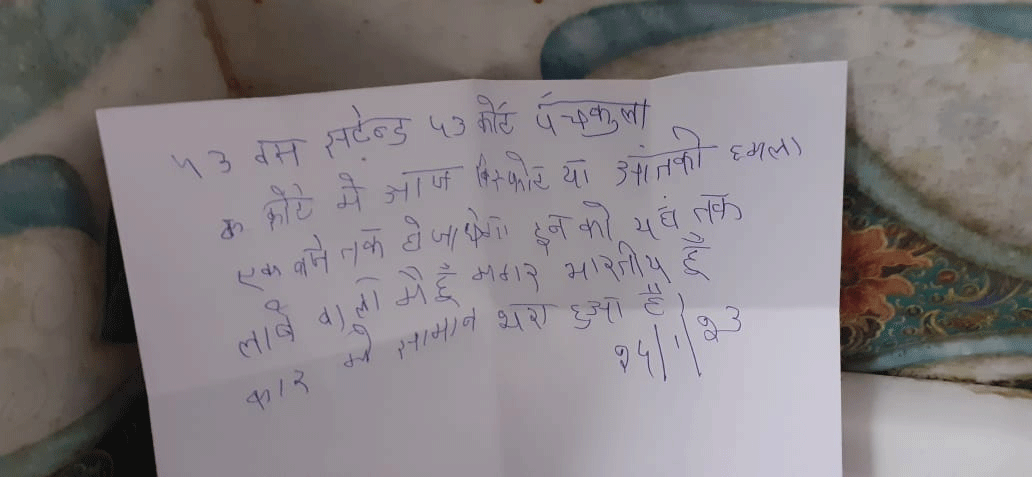 ५३ बस सटेन्ड ५३ कोर्ट पंचकुला
क कोर्ट मे आज विस्फोट या आंतकी हमला
एक बजे तक हो जायेगा इन को यहं तक
लाने वालो मैं हूँ मगर भारतीय हूँ
कार मे सामान भरा हुआ है।
२५/१/२३